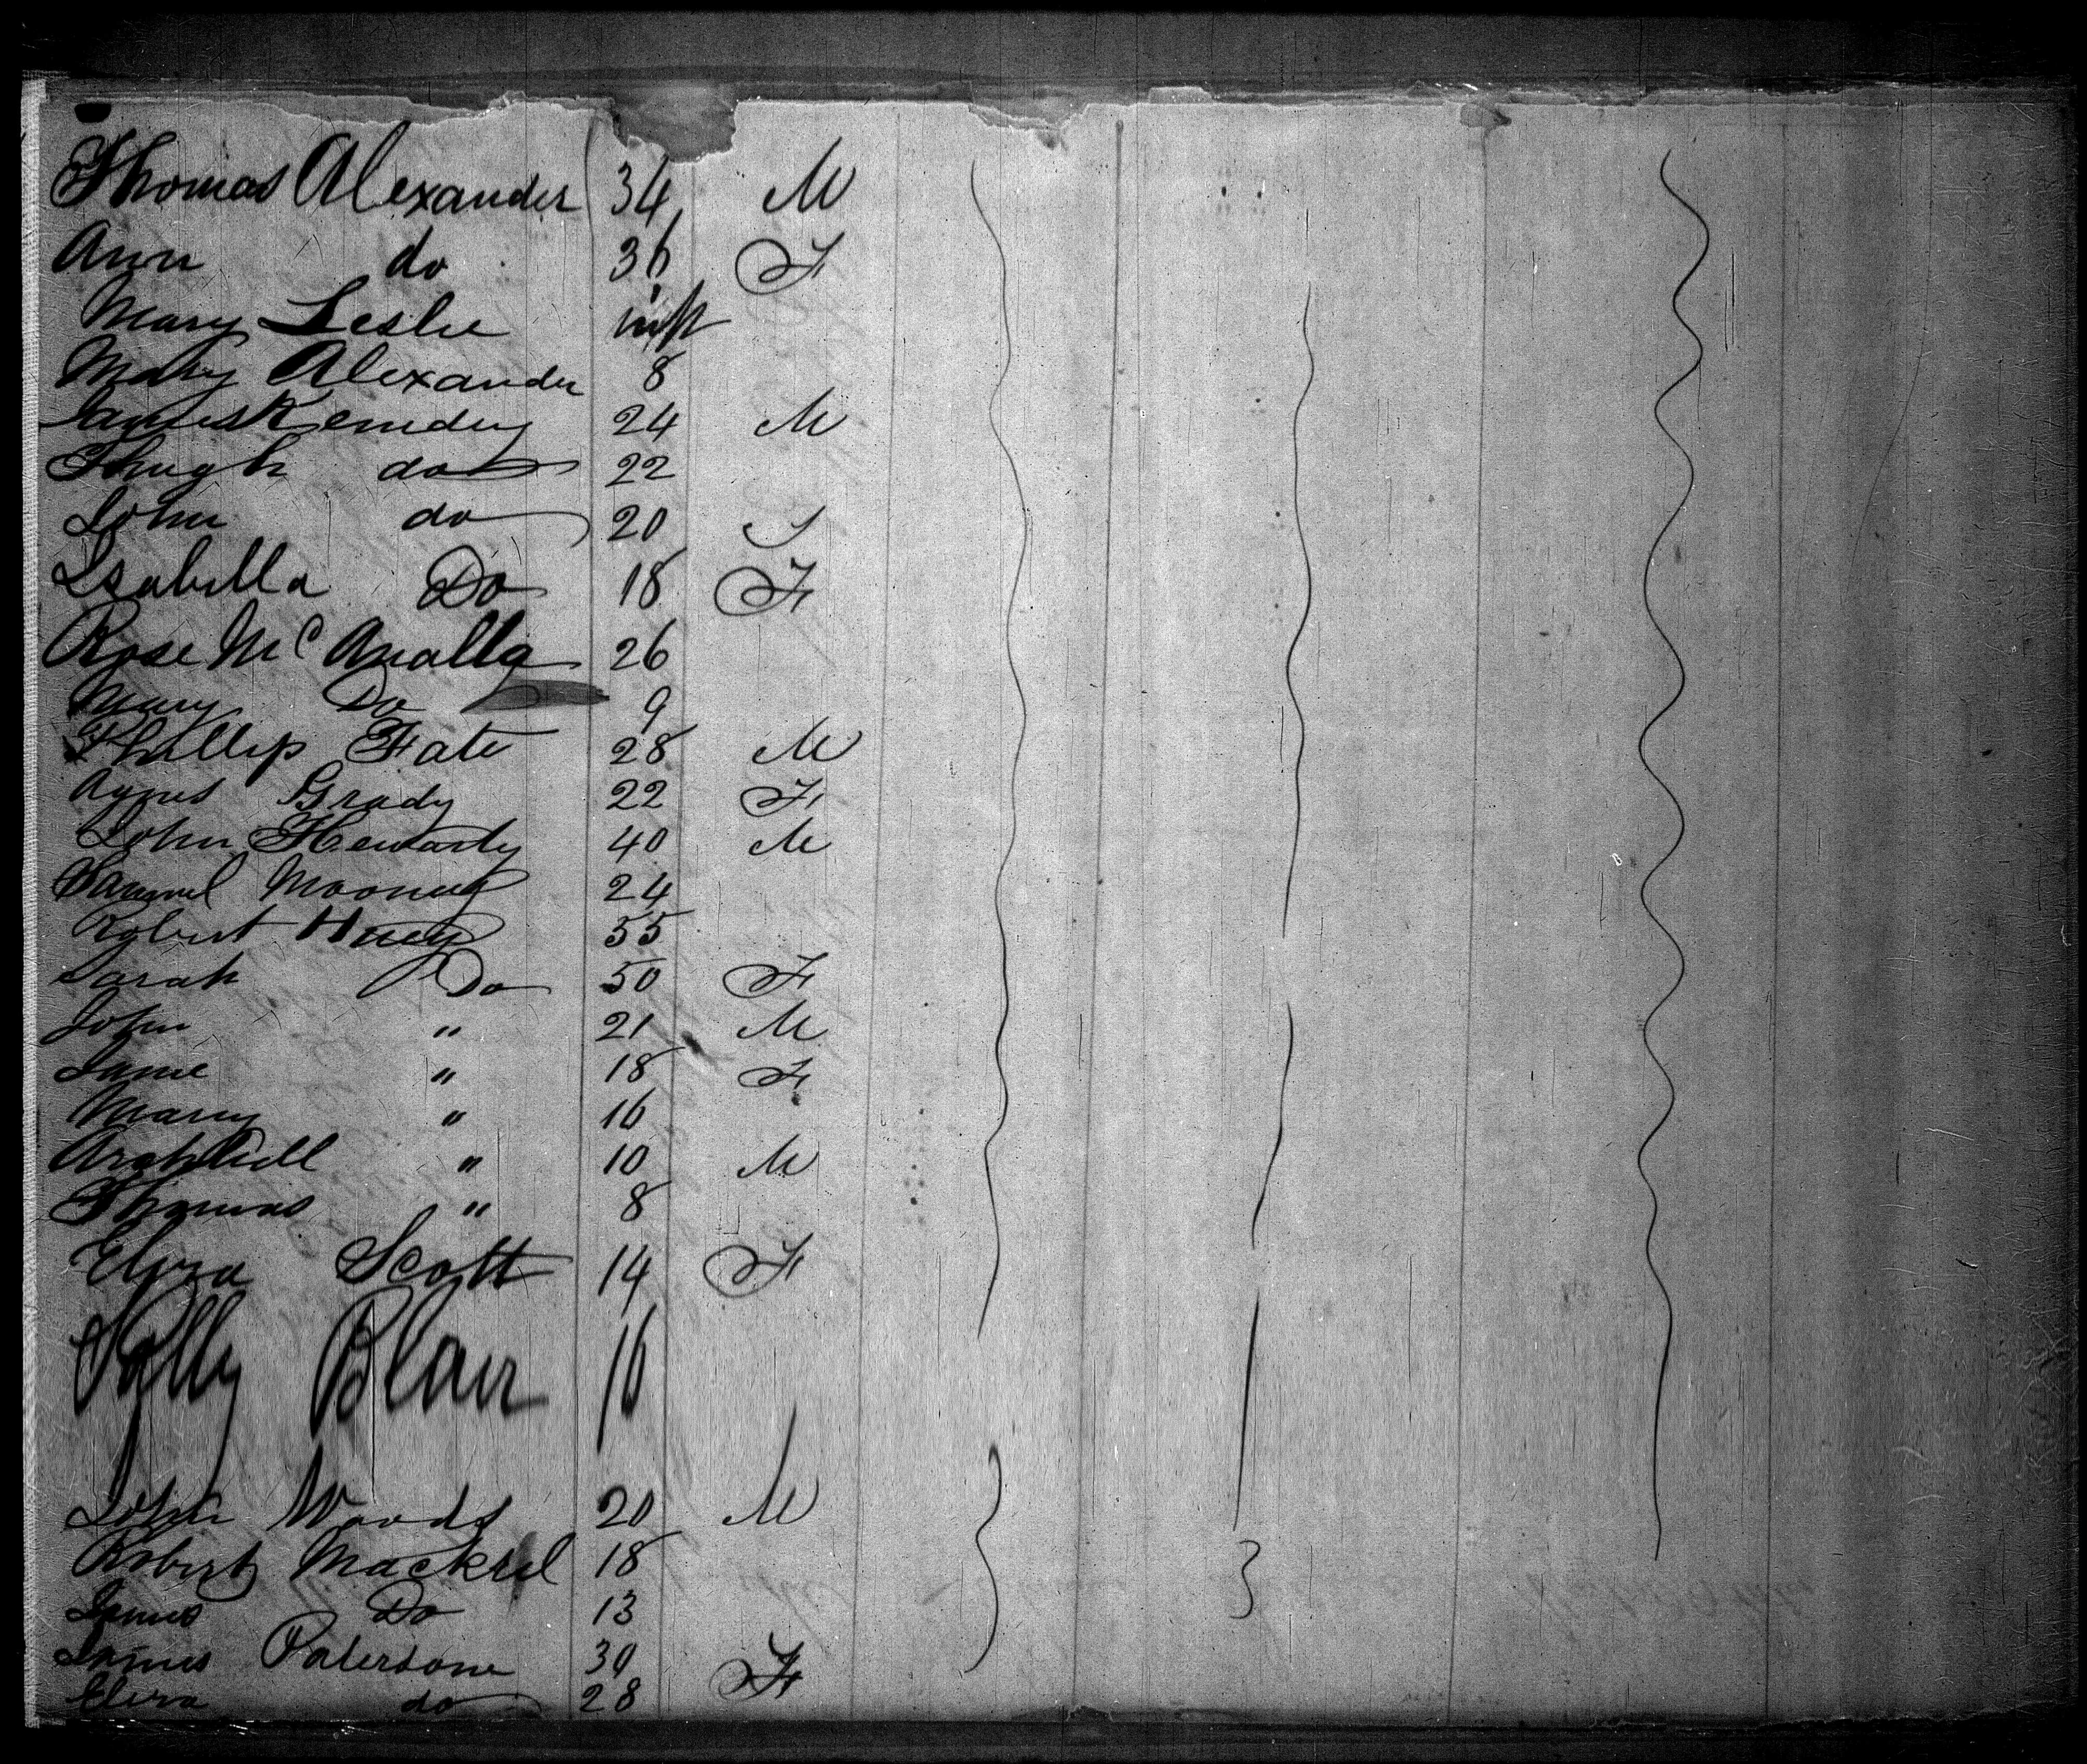 Thomas Alexander 34 M
Ann do 36 F
Mary Leslie inft
Mary Alexander 8
James 24 M
Hugh do 22
John do 20
Isabella Do 18 F
Rose McAnalla 26
Mary Do 9
Phillip Tate 28 M
Agnes Grady 22 F
John 40 M
Samuel Mooney 24
Robert Huey 55
Sarah Do 50 F
John " 21 M
Jane " 18 F
Mary " 16
Archibell " 10 M
Thomas " 8
Eliza Scott 14 F
Blair 16
John Woods 20 M
Robert Mackrel 18
James Do 13
James Patersone 30
Eliza do 28 F